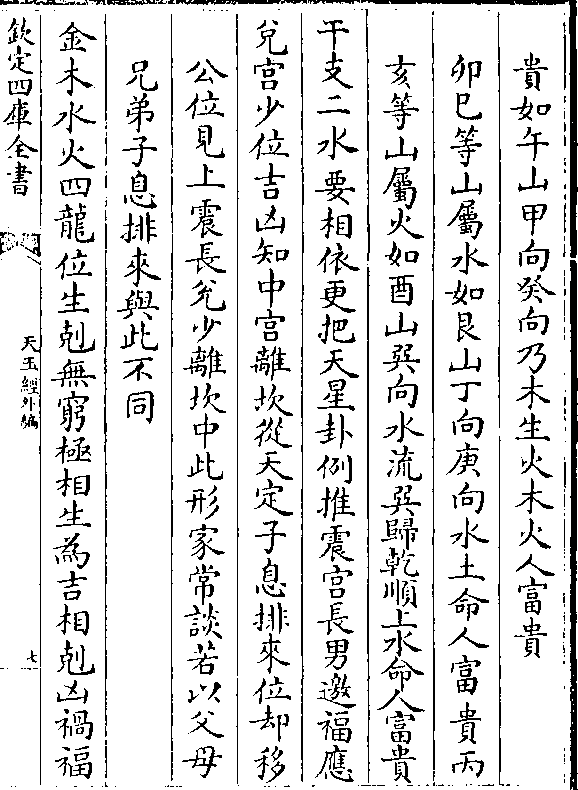 貴如午山甲向癸向乃木生火木火人富貴
卯巳等山屬水如艮山丁向庚向水土命人富貴丙
亥等山屬火如酉山巽向水流巽歸乾順上水命人富貴
干支二水要相依更把天星卦例推震宫長男邀福應
兌宫少位吉凶知中宫離坎從天定子息排來位却移
公位見上震長兌少離坎中此形家常談若以父母
兄弟子息排來與此不同
金木水火四龍位生剋無窮極相生為吉相剋凶禍福
欽定四庫全書
天玉經外編
七